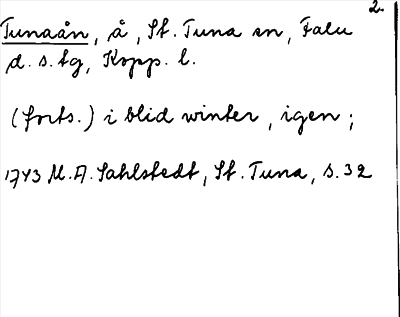 2.
Tunaån, å, St. Tuna sn, Falu
d. s. tg, Kopp. l.
(forts.) i blid winter, igen;
1743 M.A. Sahlstedt, St. Tuna, s. 32